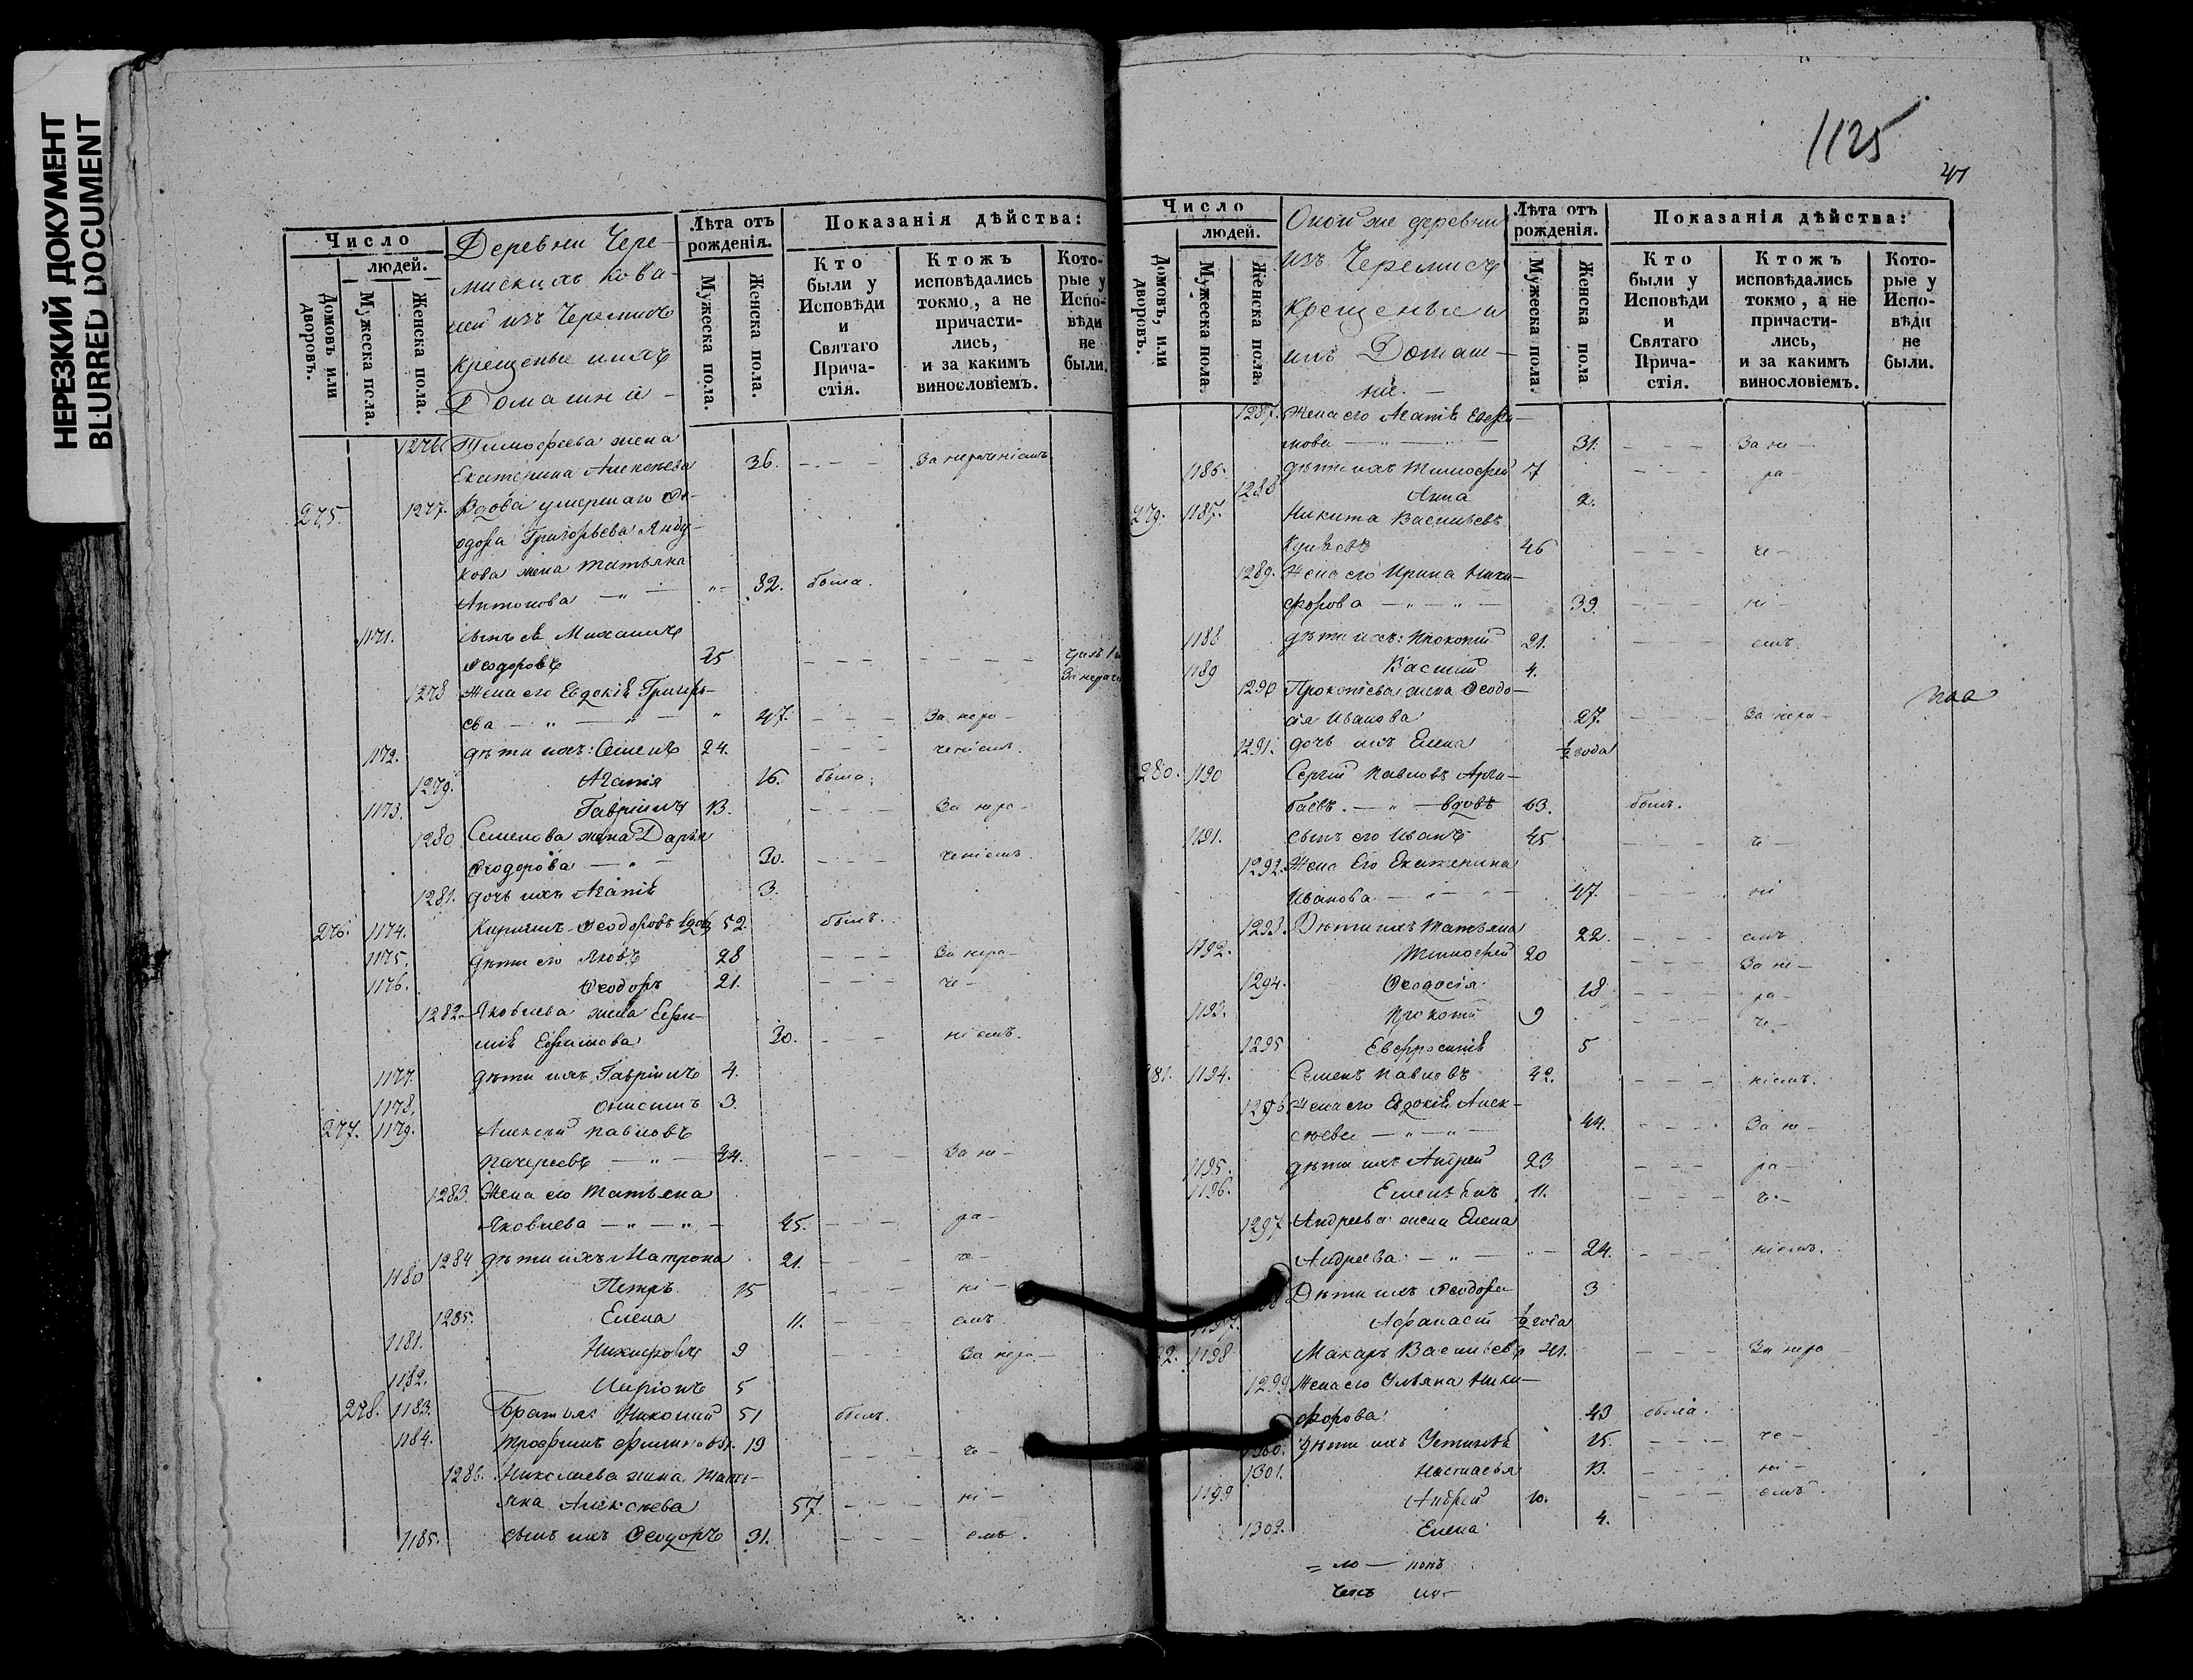 НЕРЕЗКИЙ ДОКУМЕНТ
BLURRED DOCUMENT
Число
людей.
Домовъ или дворовъ.
Мужеска пола.
Женска пола.
Деревни Чере-
миских
изъ Черемисъ
Крещеные и ихъ
Домашніе -
Лѣта отъ рожденія.
Мужеска пола.
Женска пола.
Показанія дѣйства:
Кто были у Исповѣди и Святаго Прича-стія.
Ктожъ исповѣдались токмо, а не причасти-лись, и за какимъ винословіемъ.
Кото-рые у Испо-вѣди не были.
1276. Тимофеева жена
Екатерина Алексѣева 36. - - - За нераченіемъ
275. 1277. Вдова умершаго Ѳе-
одора Григорьева
кова жена Татьяна
Антонова — " — " — 82. была.
1171. сынъ ея Михаилъ
Ѳеодоровъ 25 - - - - - - -
1278 Жена его Евдокія Григорь-
ева — " — " — " 47. - - - За нера-
1172. дѣти ихъ: Семенъ 24. - - - ченіемъ.
1279. Агапія 16. была.
1173. Гавріилъ 13. - - - За нера-
1280 Семенова жена Дарья
Ѳеодорова — " — 30. - - - ченіемъ
1281. дочь ихъ Агапія 3.
276. 1174. Кириллъ Ѳеодоровъ вдовъ 52. былъ.
1175. дѣти его Яковъ 28 - - - За нера-
1176. Ѳеодоръ 21. - - - че-
1282. Яковлева жена Евфи-
мія Ефимова 30. - - - ніемъ.
1177. дѣти ихъ Гавріилъ 4.
1178. Онисимъ 3.
277. 1179. Алексѣй Павловъ
— " — 44. - - - За не-
1283. Жена его Татьяна
Яковлева — " — " — 45. - - - ра-
1284 дѣти ихъ: Матрона 21. - - - че-
1180 Петръ 15 - - - ні-
1285. Елена 11. - - - емъ
1181. Никифоръ 9 За нера-
1182. 5
278. 1183. Братья: Николай 51 былъ.
1184. Трофимъ Филиповы. 19 - - - че-
1286. Николаева жена Тать-
яна Алексѣева 57. - - - ні-
1185. сынъ ихъ Ѳеодоръ 31. - - - емъ.
1125
41
Число
людей.
Домовъ, или дворовъ.
Мужеска пола.
Женска пола.
Оной же деревни
изъ Черемисъ
Крещеные и
ихъ Домаш-
ніе. -
Лѣта отъ рожденія.
Мужеска пола.
Женска пола
Показанія дѣйства:
Кто были у Исповѣди и Святаго Прича-стія.
Ктожъ исповѣдались токмо, а не причасти-лись, и за какимъ винословіемъ.
Кото-рые у Испо-вѣди не были.
1287. Жена его Агапія Евфи-
мова — " — 31. - - - За не-
1186. дѣти ихъ Тимофей 7 - - - ра-
1288 Анна 2.
279. 1187. Никита Васильевъ
46 - - - че-
1289. Жена его Ирина Ники-
форова — " — " — 39. - - - ні-
1188 дѣти ихъ: Прокопій 21. - - - емъ
1189 Василій 4.
1290 Прокопіева жена Ѳеодо-
сія Иванова 27. - - - За нера-
1291. дочь ихъ Елена ½ года
280. 1190 Сергій Павловъ
— " — вдовъ 63. былъ.
1191. сынъ его Иванъ 45 - - - че-
1292. Жена Его Екатерина
Иванова — " — " — 47. - - - ні
1293. Дѣти ихъ Татьяна 22. - - - емъ
1192. Тимофей 20 - - - За не-
1294. Ѳеодосія 18 - - - ра-
1193. Прокопій 9 - - - че-
1295 Евфросинія 5
281. 1194. Семенъ Павловъ 42. - - - ніемъ.
1296 Жена его Евдокія Алек-
сѣева — " — " — 44. - - - За не-
1195. дѣти ихъ Андрей 23 - - - ра-
1196. 11. - - - че-
1297 Андреева жена Елена
Андреева — " — " — 24. - - - ніемъ.
Дѣти ихъ Ѳеодора 3
1197. Афанасій ½ года
1198 Макаръ Васильевъ 41. - - - За нера
1299 Жена его Ульяна Ники-
форова 43 была.
1300. дѣти ихъ Устинія 15. - - - че-
1301. Настасья 13. - - - ні-
1199 Андрей 10. - - - емъ.
1302. Елена 4.